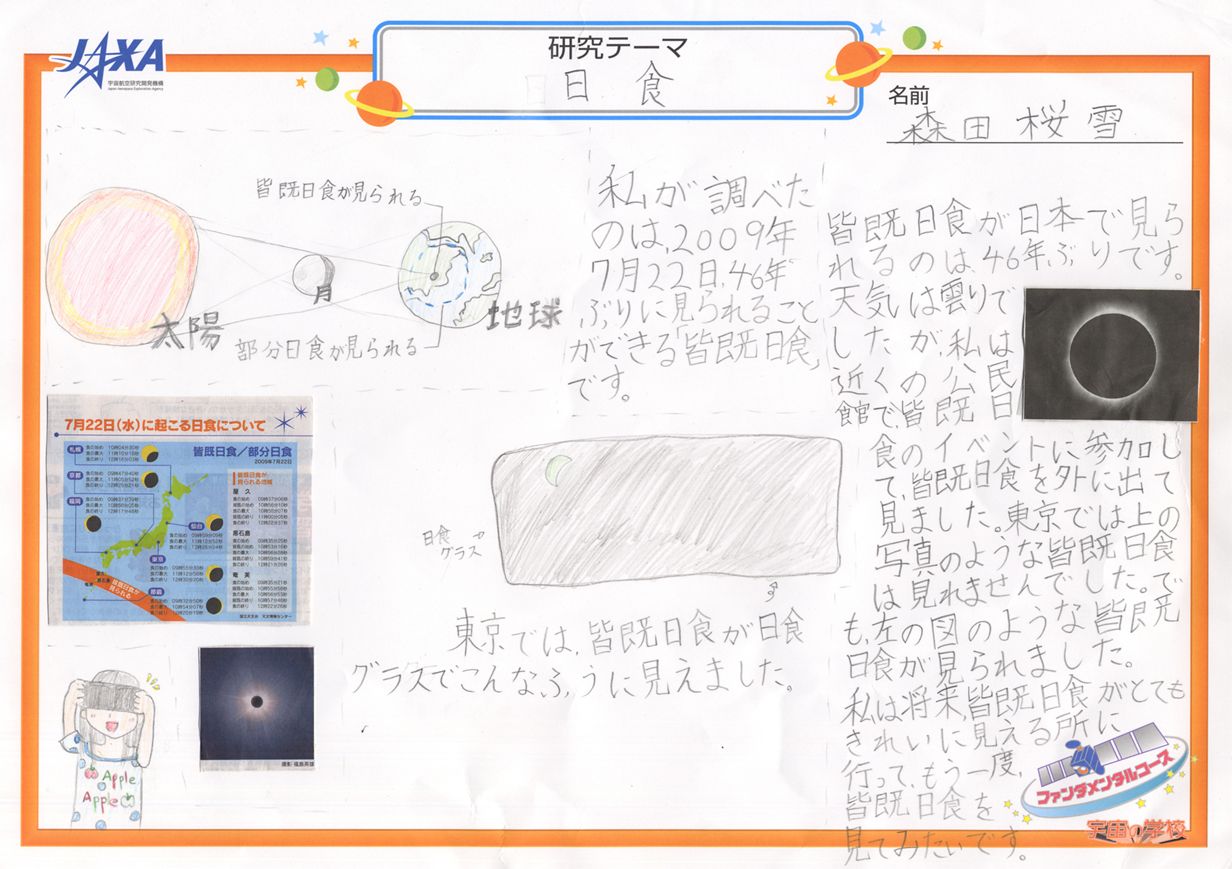 JAXA
宇宙航空研究開発機構
Japan Aerospace Exploration Agency
研究テーマ
日食
名前
森田 桜雪
皆既日食が見られる
太陽
月
地球
部分日食が見られる
私が調べた
のは,2009年
7月22日,46年
ぶりに見られること
ができる「皆既日食」
です。
7月22日(水)に起こる日食について
皆既日食/部分日食
2009年7月22日
札幌
京都
福岡
仙台
東京
那覇
皆既日食が
見られる地域
屋久
悪石島
奄美
皆既日食が
見られる
国立天文台 天文情報センター
日食
グラス
東京では,皆既日食が日食
グラスでこんなふうに見えました。
Apple
Apple
皆既日食が日本で見ら
れるのは,46年ぶりです。
天気は曇りで
したが,私は
近くの公民
館で,皆既日
食のイベントに参加し
て,皆既日食を外に出て
見ました。東京では上の
写真のような皆既日食
は見れませんでした。で
も,左の図のような皆既
日食が見られました。
私は将来,皆既日食がとても
きれいに見える所に
行って,もう一度,
皆既日食を
見てみたいです。
ファンダメンタルコース
宇宙の学校